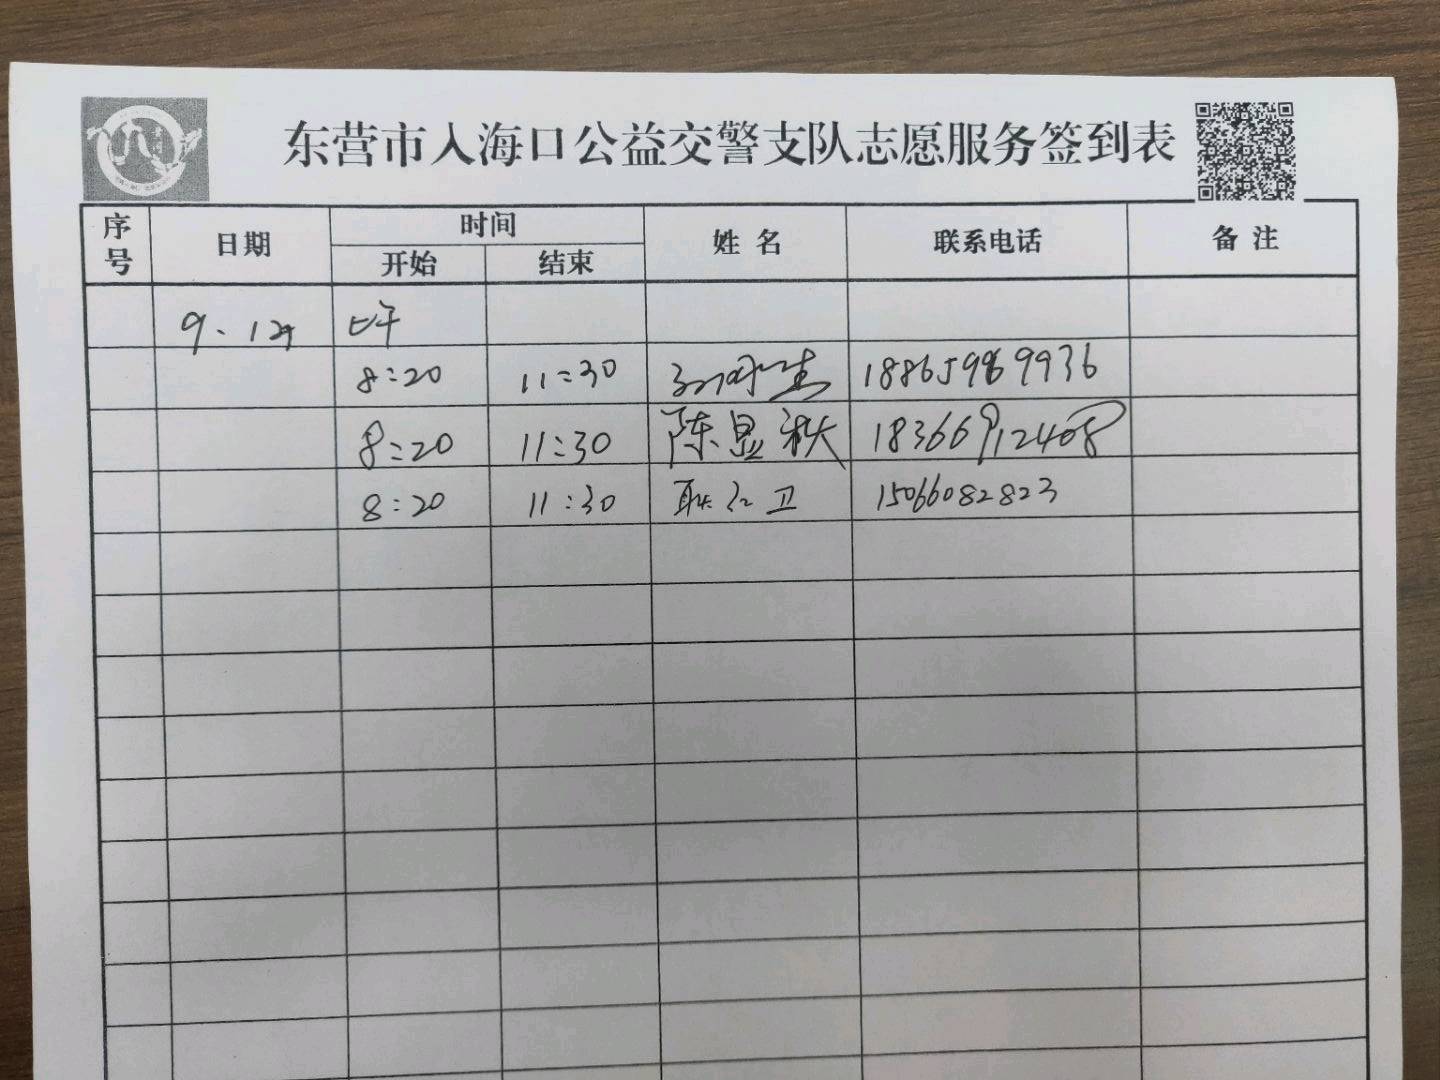 东营市入海口公益交警支队志愿服务签到表
序号 日期 时间 姓名 联系电话 备注
开始 结束
上午
8:20 11:30
8:20 11:30 陈显秩 18366912408
8:20 11:30 耿红卫 15066082823